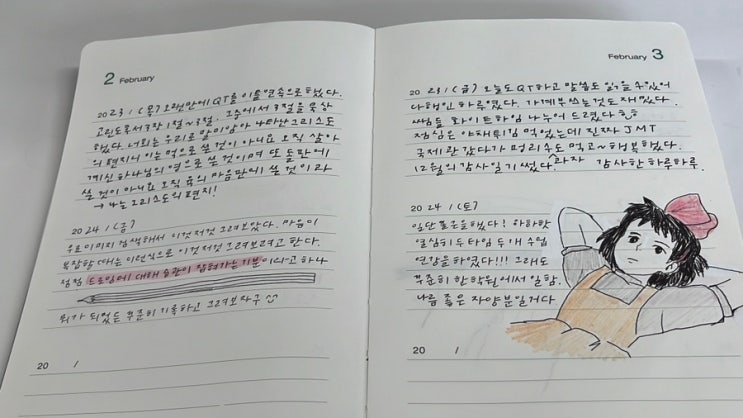 2 February
2023 / (목) 오랜만에 QT를 이틀연속으로 했다.
고린도후서 3장 1절~3절. 그중에서 3절을 묵상
했다. 너희는 우리로 말미암아 나타난 그리스도
의 편지니 이는 먹으로 쓴 것이 아니요 오직 살아
계신 하나님의 영으로 쓴 것이며 또 돌판에
쓴 것이 아니요 오직 육의 마음판에 쓴 것이라
→ 나는 그리스도의 편지!
2024 / (금)
무료이미지 검색해서 이것저것 그려보았다. 마음이
복잡할 때는 이런식으로 이것저것 그려보려고 한다.
점점 드로잉에 대해 습관이 잡혀가는 기분이라고 하나
뭐가 되었든 꾸준히 기록하고 그려보자구
20 /
February 3
2023 / (금) 오늘도 QT하고 말씀도 읽을 수 있어
다행인 하루였다. 가계부 쓰는 것도 재밌다.
쌤들 화이트하임 나누어 드렸다
점심은 야채튀김 먹었는데 진짜 JMT
국제관 갔다가 머리수도 먹고~ 행복했다.
12월의 감사일기 썼다. 과자 감사한 하루하루.
2024 / (토)
일단 출근을 했다! 아하핫
열심히 두타임 두개 수업
연강을 하였다!!! 그래도
꾸준히 한 학원에서 일함.
나름 좋은 자양분일거다
20 /